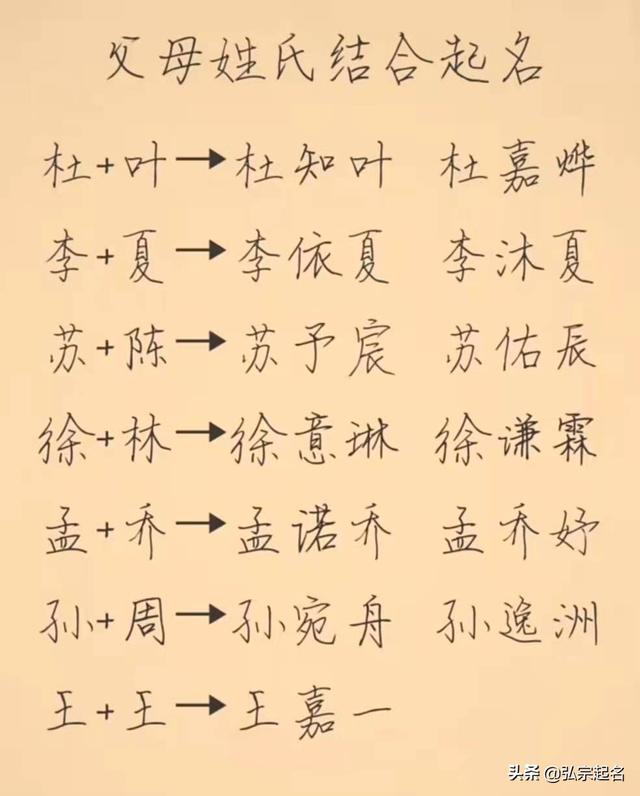 父母姓氏结合起名
杜+叶→杜知叶 杜嘉烨
李+夏→李依夏 李沐夏
苏+陈→苏予宸 苏佑辰
徐+林→徐意琳 徐谦霖
孟+乔→孟诺乔 孟乔妤
孙+周→孙宛舟 孙逸洲
王+王→王嘉一
头条 @弘宗起名